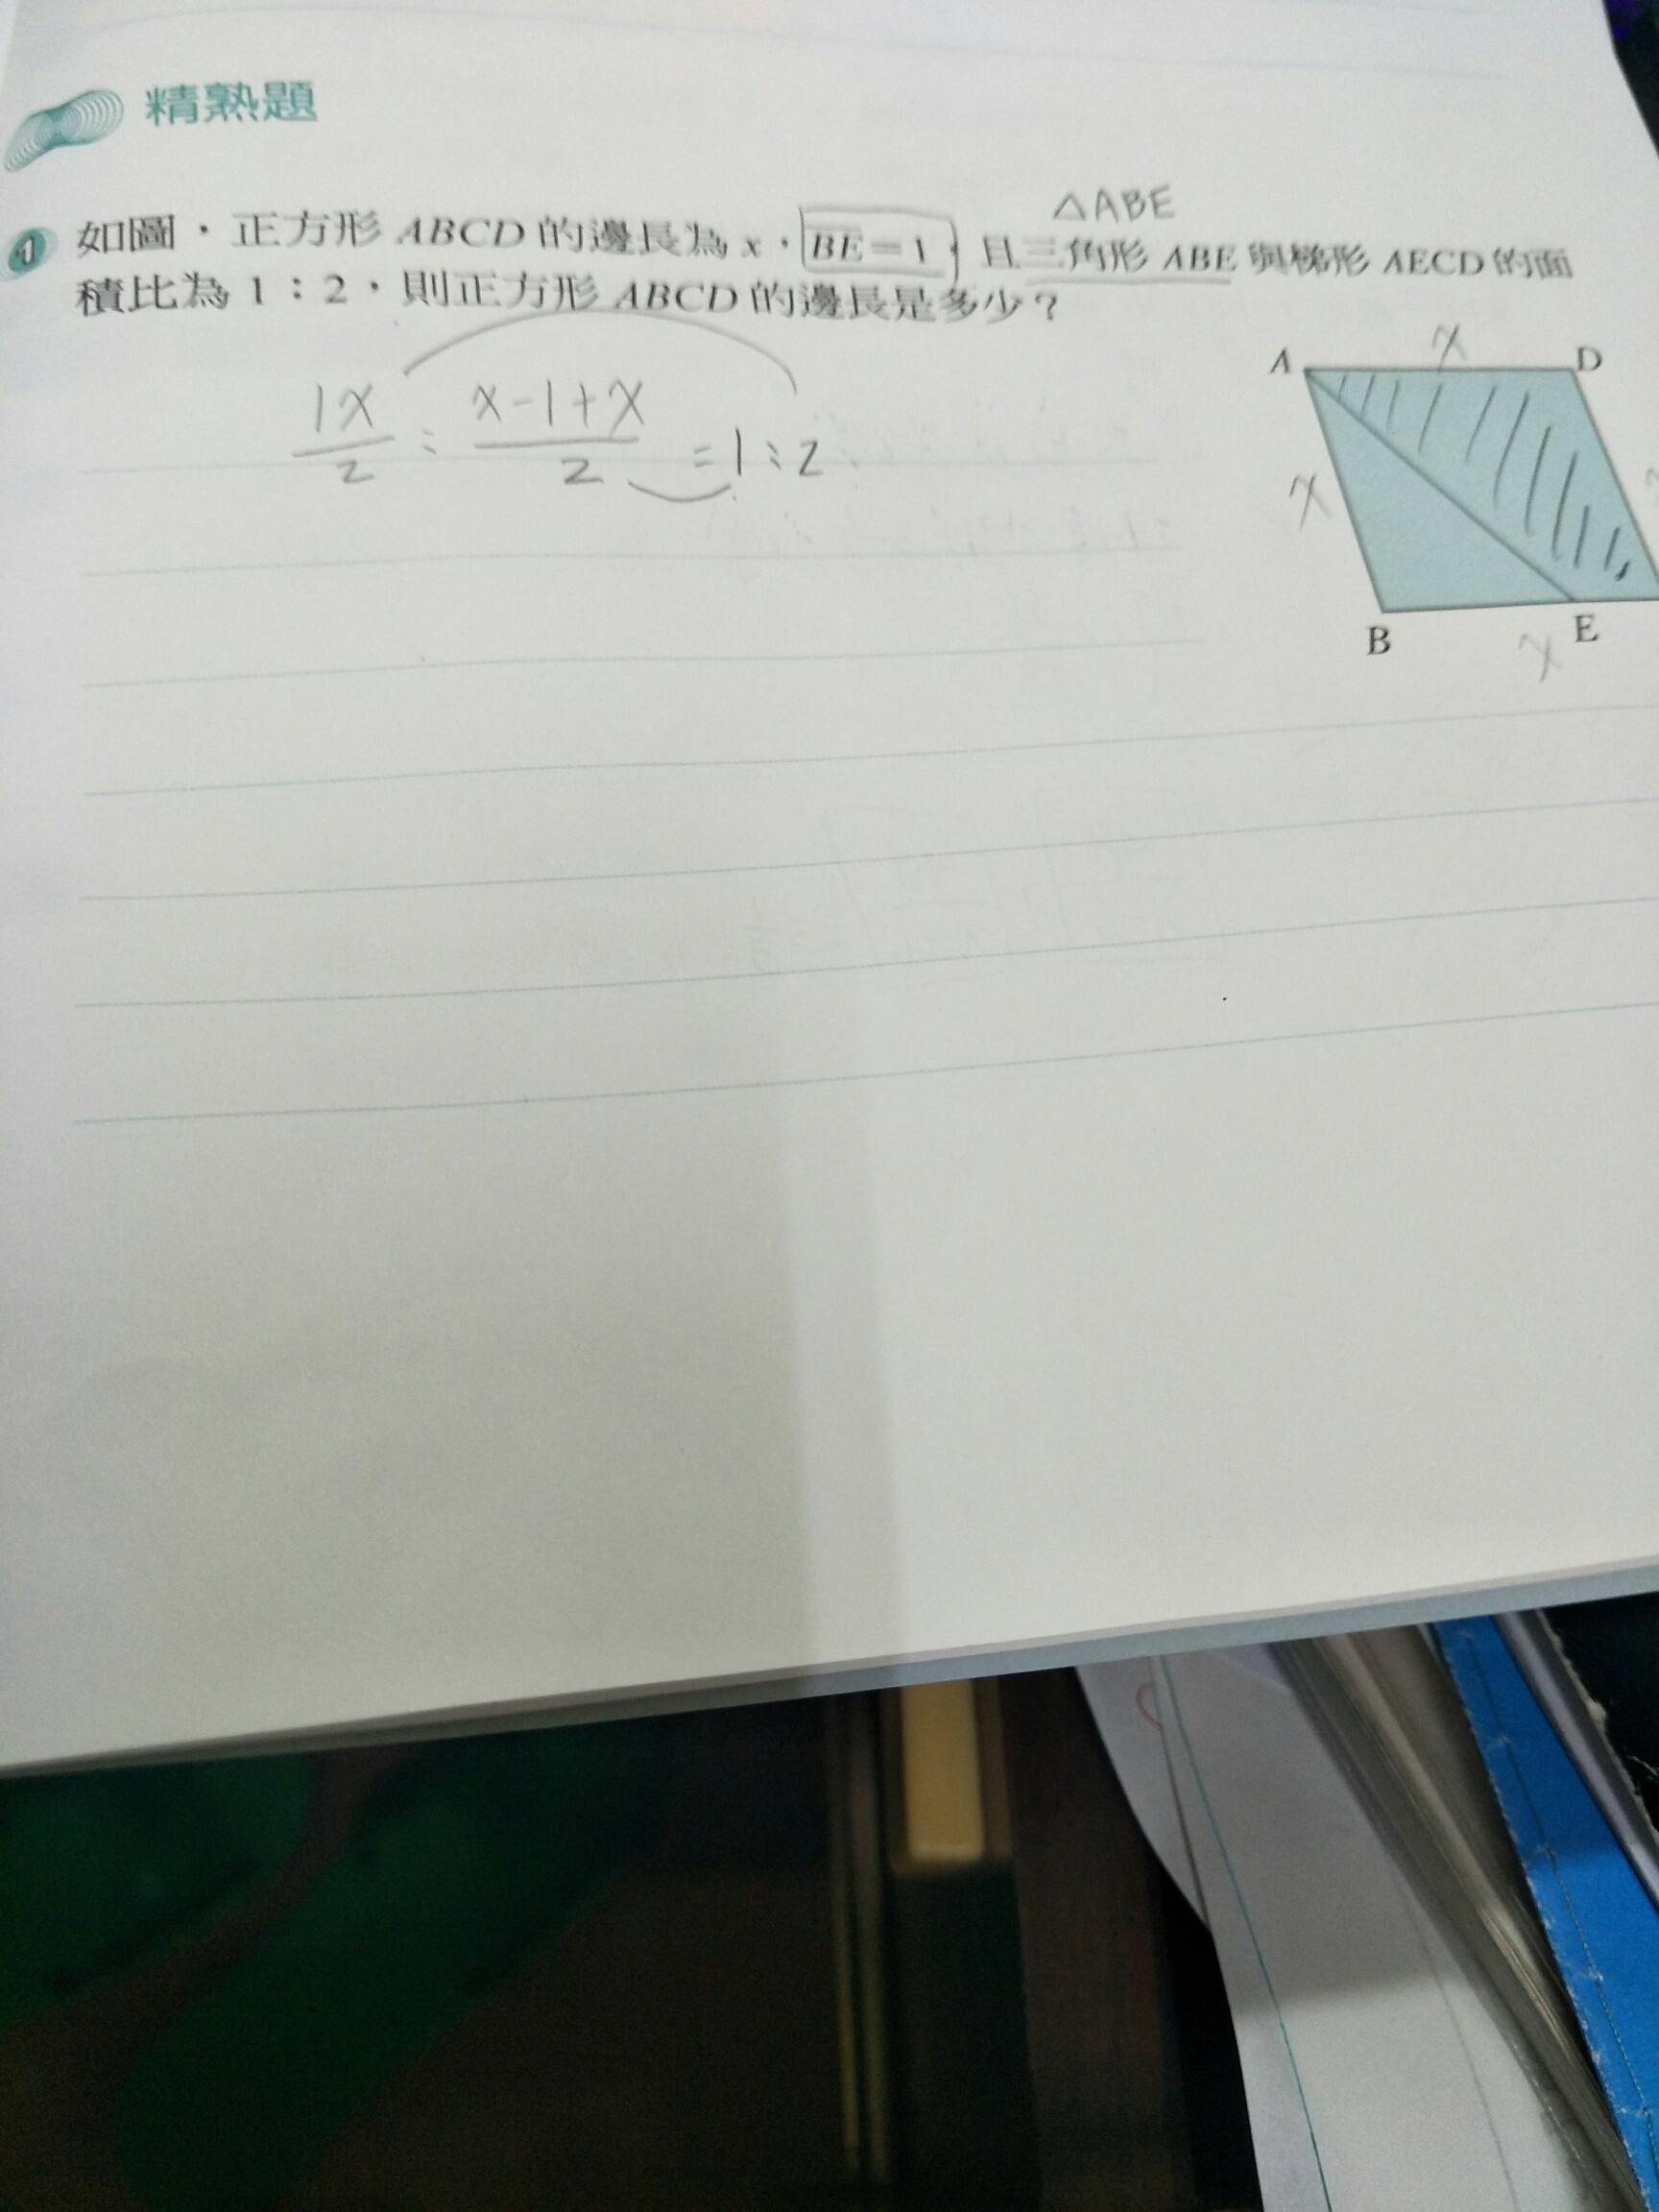 精熟題
△ABE
1 如圖，正方形 ABCD 的邊長為 x，BE=1，且三角形 ABE 與梯形 AECD 的面
積比為 1：2，則正方形 ABCD 的邊長是多少？
1x/2 : x-1+x/2 =1:2
x
A D
x
B E
x